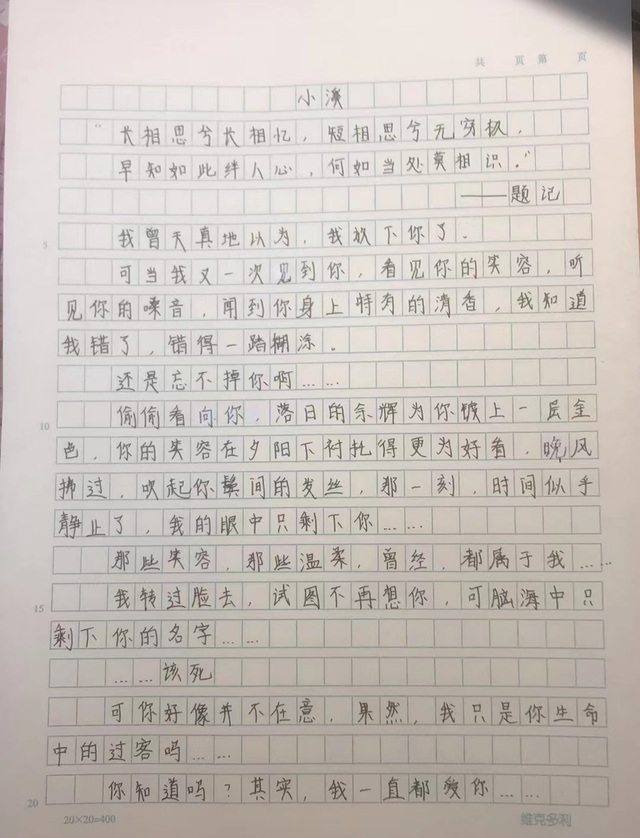 共 页 第 页
小溪
“长相思兮长相忆，短相思兮无穷极，
早知如此绊人心，何如当处莫相识。”
——题记
我曾天真地以为，我放下你了。
5
可当我又一次见到你，看见你的笑容，听
见你的嗓音，闻到你身上特有的清香，我知道
我错了，错得一踏糊涂。
还是忘不掉你啊……
10
偷偷看向你，落日的余辉为你镀上一层金
色，你的笑容在夕阳下衬托得更为好看，晚风
拂过，吹起你鬓间的发丝，那一刻，时间似乎
静止了，我的眼中只剩下你……
那些笑容，那些温柔，曾经，都属于我……
15
我转过脸去，试图不再想你，可脑海中只
剩下你的名字……
……该死
可你好像并不在意，果然，我只是你生命
中的过客吗……
20
你知道吗？其实，我一直都爱你……
20×20=400
维克多利